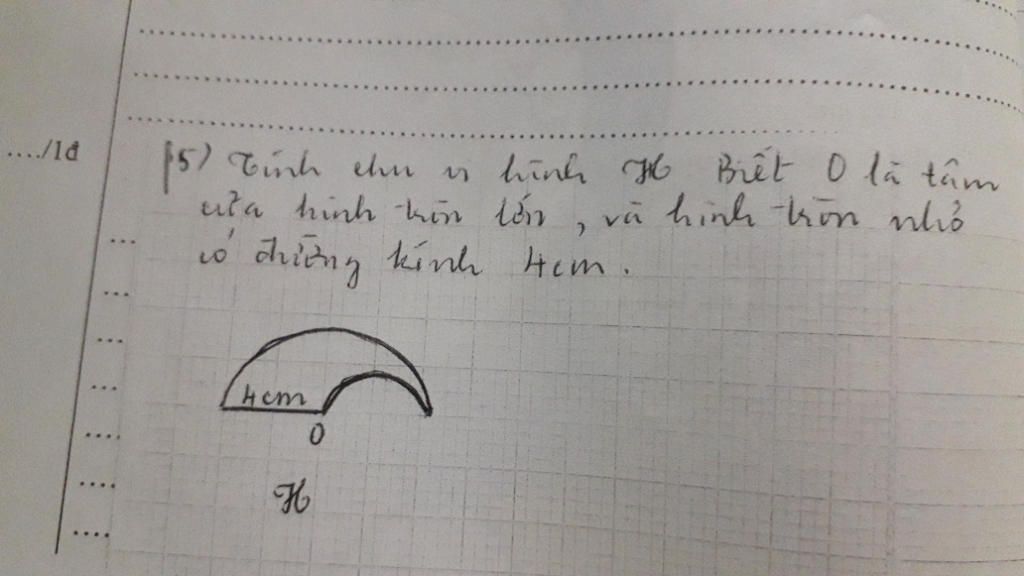 ..../1đ
15) Tính chu vi hình H Biết O là tâm
của hình tròn lớn, và hình tròn nhỏ
có đường kính 4cm.
4cm
O
H